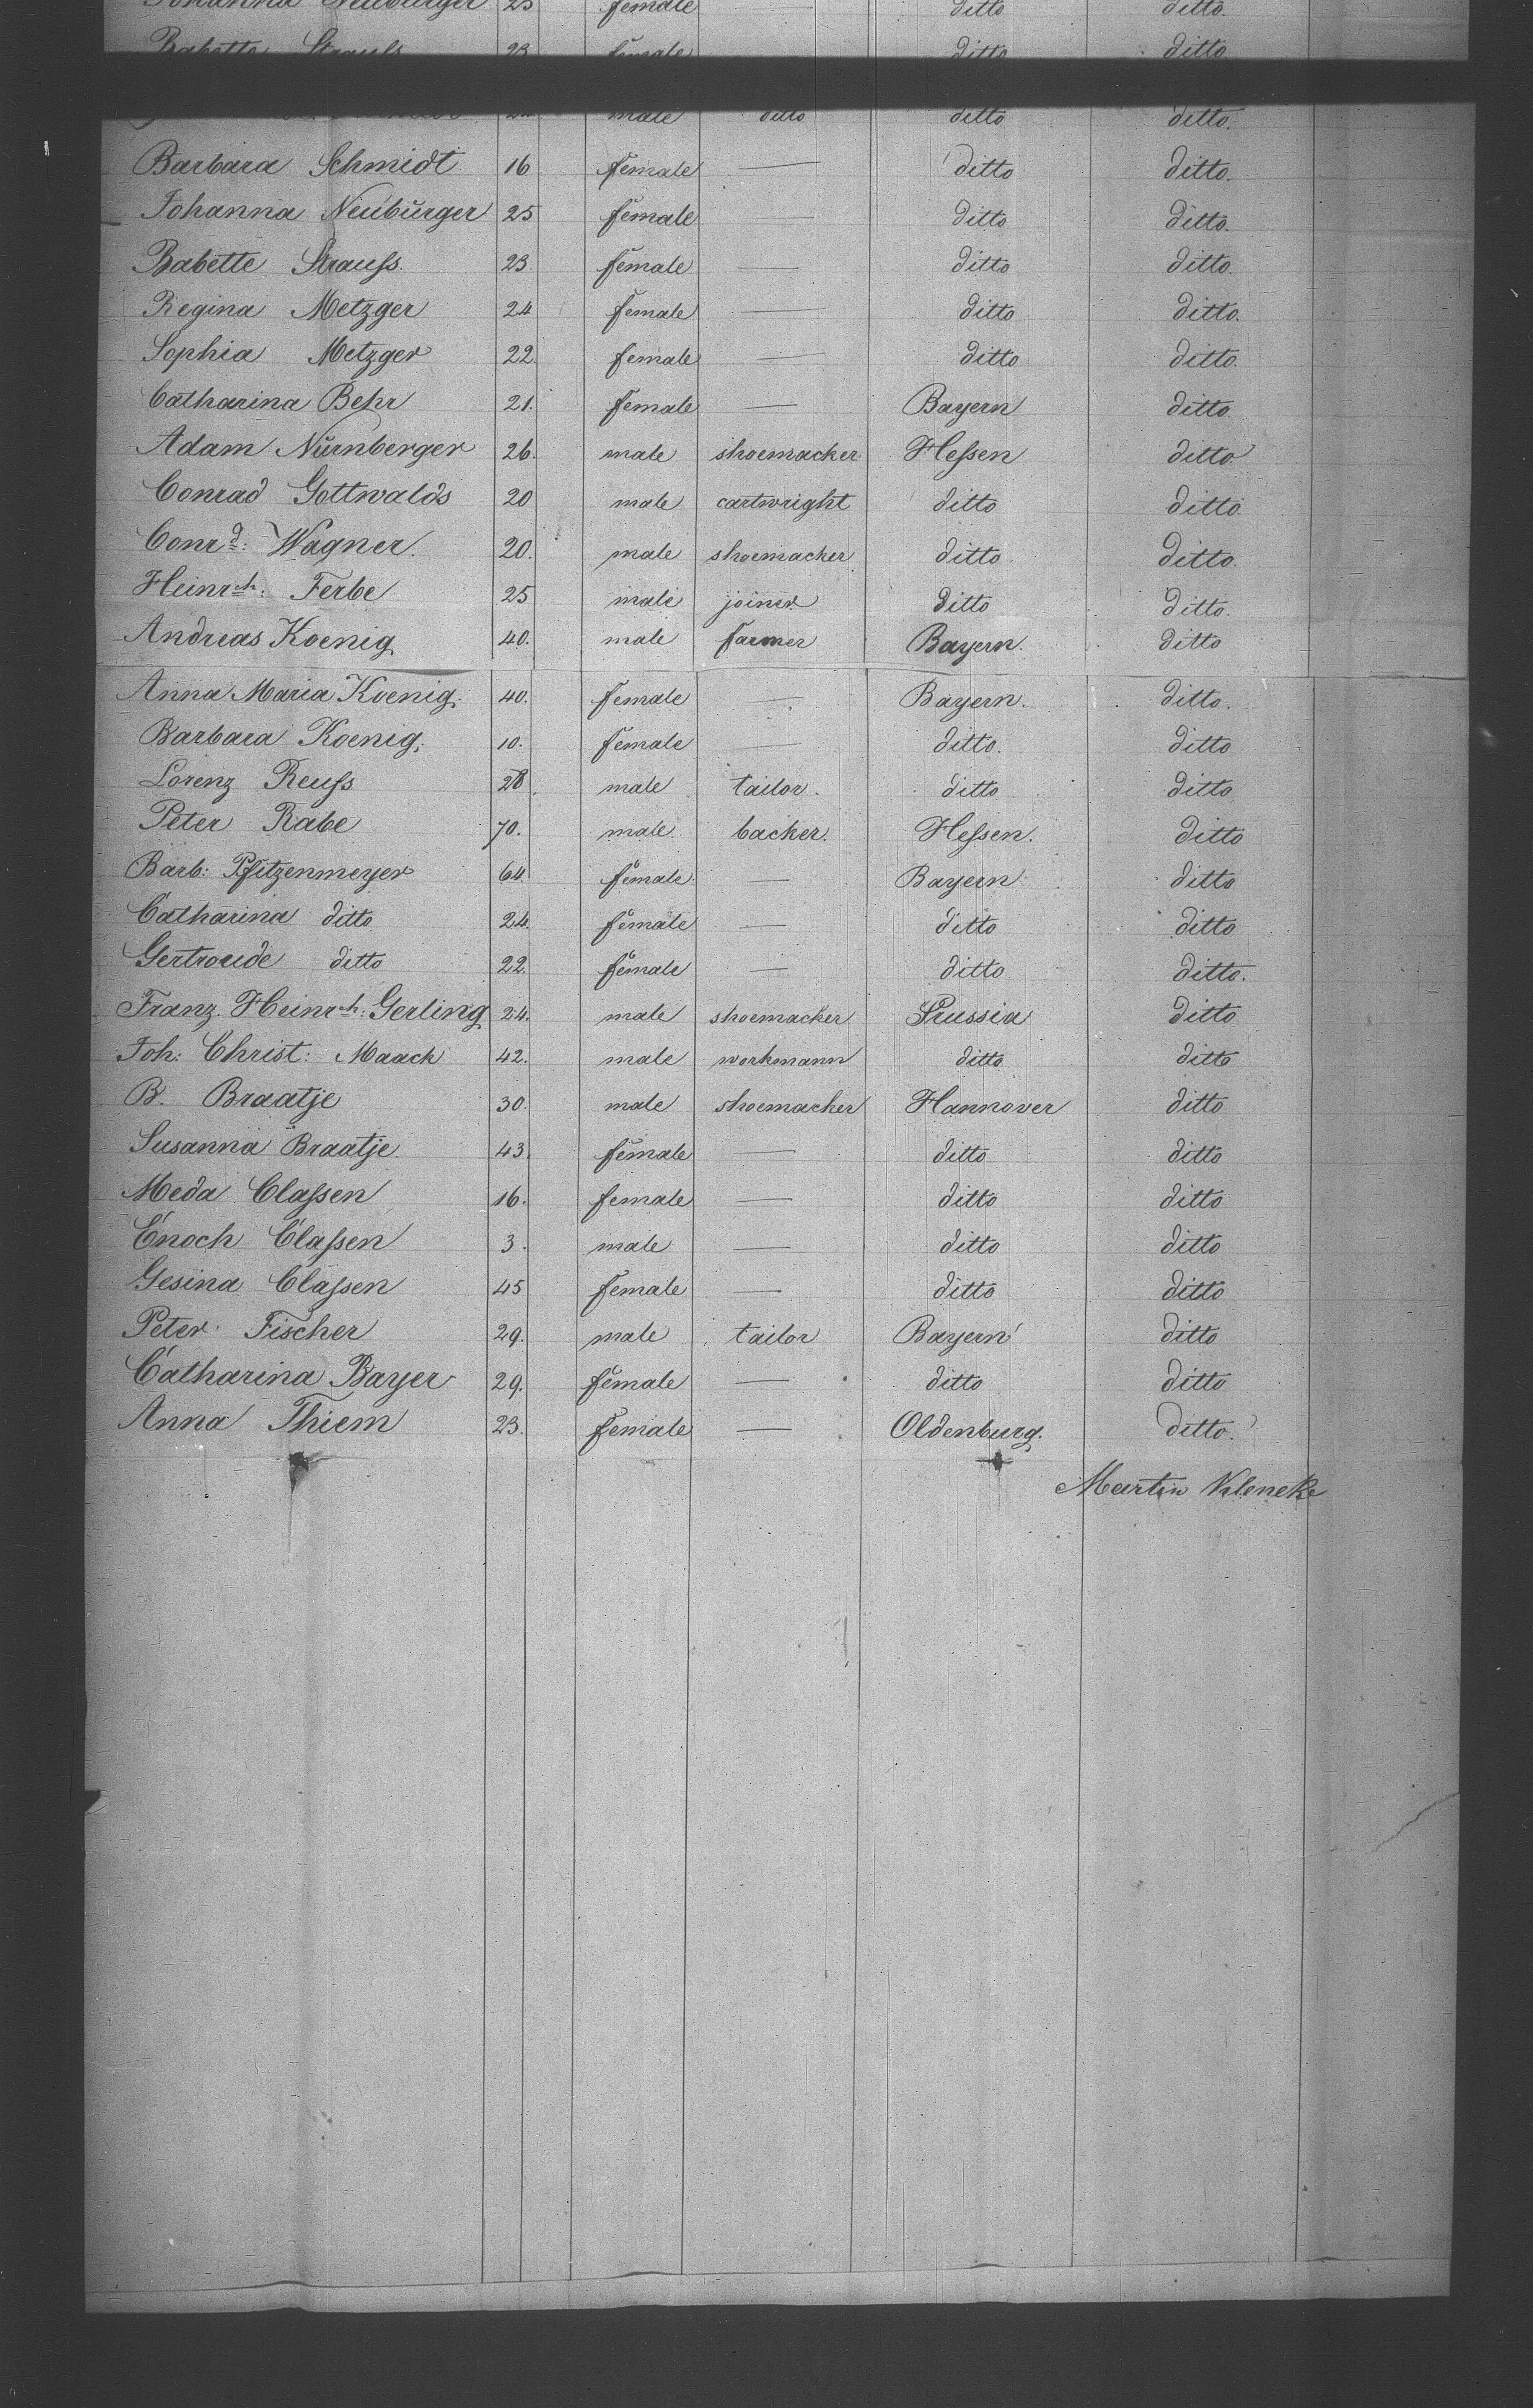 Johanna Neuburger 25 female — ditto ditto.
Babette Strauß 23 female ditto ditto
male ditto ditto ditto.
Barbara Schmidt 16 female — ditto ditto.
Johanna Neuburger 25 female — ditto ditto.
Babette Strauß. 23. female — ditto ditto.
Regina Metzger 24 female — ditto ditto.
Sophia Metzger 22. female — ditto ditto.
Catharina Behr 21. female — Bayern ditto
Adam Nürnberger 26. male shoemacker Heßen ditto
Conrad Gottwalds 20 male cartwright ditto ditto.
Conrd: Wagner. 20. male shoemacker ditto ditto.
Heinrch: Ferbe 25 male joiner ditto ditto.
Andreas Koenig 40. male farmer Bayern. ditto
Anna Maria Koenig. 40. female — Bayern. ditto.
Barbara Koenig. 10. female — ditto. ditto
Lorenz Reuß 28. male tailor. ditto ditto
Peter Rabe 70. male. backer. Heßen. ditto
Barb: Pfitzenmeyer 64. female — Bayern ditto
Catharina ditto 24. female — ditto ditto
Gertroude ditto 22. female — ditto ditto.
Franz Heinrch: Gerling 24. male shoemacker Prussia ditto
Joh: Christ: Maack 42. male workmann ditto ditto
B. Braatje 30. male shoemacker Hannover ditto
Susanna Braatje. 43. female — ditto ditto
Meda Claßen 16. female — ditto ditto
Enoch Claßen 3. male — ditto ditto
Gesina Claßen 45 female — ditto ditto
Peter Fischer 29. male tailor Bayern ditto
Catharina Bayer 29. female — ditto ditto
Anna Thiem 23. female — Oldenburg. ditto.
Martin